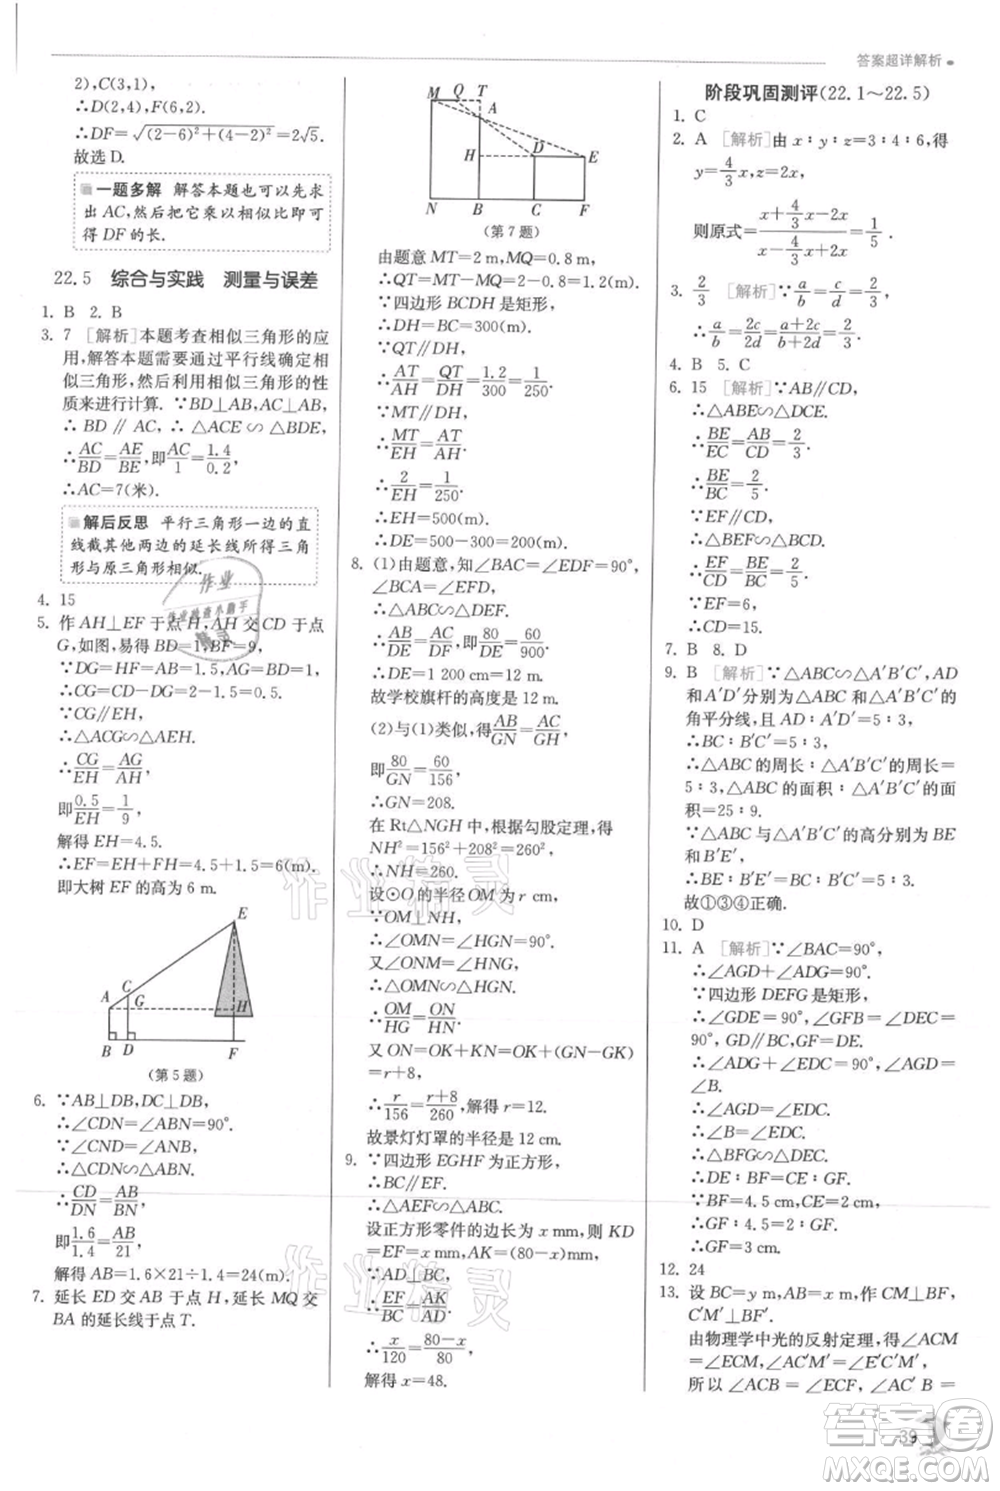 答案超详解析
2),C(3,1),
∴D(2,4),F(6,2).
∴DF=√((2-6)²+(4-2)²)=2√5.
故选D.
一题多解 解答本题也可以先求
出AC,然后把它乘以相似比即可
得DF的长.
22.5 综合与实践 测量与误差
1. B 2. B
3. 7 [解析]本题考查相似三角形的应
用,解答本题需要通过平行线确定相
似三角形,然后利用相似三角形的性
质来进行计算. ∵BD⊥AB,AC⊥AB,
∴ BD∥AC,∴△ACE∽△BDE,
∴AC/BD=AE/BE,即AC/1=1.4/0.2,
∴AC=7(米).
解后反思 平行三角形一边的直
线截其他两边的延长线所得三角
形与原三角形相似.
4. 15
5. 作AH⊥EF于点H,AH交CD于点
G,如图,易得BD=1,BF=9,
∵DG=HF=AB=1.5,
∴CG=CD-DG=2-1.5=0.5.
∵CG∥EH,
∴△ACG∽△AEH.
∴CG/EH=AG/AH,
即0.5/EH=1/9,
解得EH=4.5.
∴EF=EH+FH=4.5+1.5=6(m).
即大树EF的高为6 m.
E
C
A G H
B D F
(第5题)
6. ∵AB⊥DB,DC⊥DB,
∴∠CDN=∠ABN=90°.
∵∠CND=∠ANB,
∴△CDN∽△ABN.
∴CD/DN=AB/BN,
即1.6/1.4=AB/21,
解得AB=1.6×21÷1.4=24(m).
7. 延长ED交AB于点H,延长MQ交
BA的延长线于点T.
M Q T
A
H D E
N B C F
(第7题)
由题意MT=2 m,MQ=0.8 m,
∴QT=MT-MQ=2-0.8=1.2(m).
∵四边形BCDH是矩形,
∴DH=BC=300(m).
∵QT∥DH,
∴AT/AH=QT/DH=1.2/300=1/250.
∵MT∥DH,
∴MT/EH=AT/AH.
∴2/EH=1/250.
∴EH=500(m).
∴DE=500-300=200(m).
8. (1)由题意,知∠BAC=∠EDF=90°,
∠BCA=∠EFD,
∴△ABC∽△DEF.
∴AB/DE=AC/DF,即80/DE=60/900.
∴DE=1 200 cm=12 m.
故学校旗杆的高度是12 m.
(2)与(1)类似,得AB/GN=AC/GH,
即80/GN=60/156,
∴GN=208.
在Rt△NGH中,根据勾股定理,得
NH²=156²+208²=260².
∴NH=260.
设⊙O的半径OM为r cm,
∵OM⊥NH,
∴∠OMN=∠HGN=90°.
又∠ONM=∠GNH,
∴△OMN∽△HGN.
∴OM/HG=ON/HN.
又ON=OK+KN=OK+(GN-GK)
=r+8,
∴r/156=(r+8)/260,解得r=12.
故景灯灯罩的半径是12 cm.
9. ∵四边形EGHF为正方形,
∴BC∥EF.
∴△AEF∽△ABC.
设正方形零件的边长为x mm,则KD
=EF=x mm,AK=(80-x)mm.
∵AD⊥BC,
∴EF/BC=AK/AD.
∴x/120=(80-x)/80.
解得x=48.
阶段巩固测评(22.1～22.5)
1. C
2. A [解析]由x∶y∶z=3∶4∶6,得
y=4/3x,z=2x,
则原式=(x+4/3x-2x)/(x-4/3x+2x)=1/5.
3. 2/3 [解析]∵a/b=c/d=2/3,
∴a/b=2c/2d=(a+2c)/(b+2d)=2/3.
4. B 5. C
6. 15 [解析]∵AB∥CD,
∴△ABE∽△DCE.
∴BE/EC=AB/CD=2/3.
∴BE/BC=2/5.
∵EF∥CD,
∴△BEF∽△BCD.
∴EF/CD=BE/BC=2/5.
∵EF=6,
∴CD=15.
7. B 8. D
9. B [解析]∵△ABC∽△A′B′C′,AD
和A′D′分别为△ABC和△A′B′C′的
角平分线,且AD∶A′D′=5∶3,
∴BC∶B′C′=5∶3.
∴△ABC的周长∶△A′B′C′的周长=
5∶3,△ABC的面积∶△A′B′C′的
面积=25∶9.
∵△ABC与△A′B′C′的高分别为BE
和B′E′,
∴BE∶B′E′=5∶3.
故①③④正确.
10. D
11. A [解析]∵∠BAC=90°,
∴∠AGD+∠ADG=90°.
∵四边形DEFG是矩形,
∴∠GDE=90°,∠GFB=∠DEC=
90°,GD∥BC,GF=DE.
∴∠ADG+∠EDC=90°,∠AGD=
∠B.
∴∠AGD=∠EDC.
∴∠B=∠EDC.
∴△BFG∽△DEC.
∴DE∶BF=CE∶GF.
∵BF=4.5 cm,CE=2 cm,
∴GF∶4.5=2∶GF.
∴GF=3 cm.
12. 24
13. 设BC=y m,AB=x m,作CM⊥BF,
C′M′⊥BF.
由物理学中光的反射定理,得∠ACM
=∠ECM,∠AC′M′=∠FC′M′,
所以∠ACB=∠ECF,∠AC′B=
39
答案圈
MXQE.COM